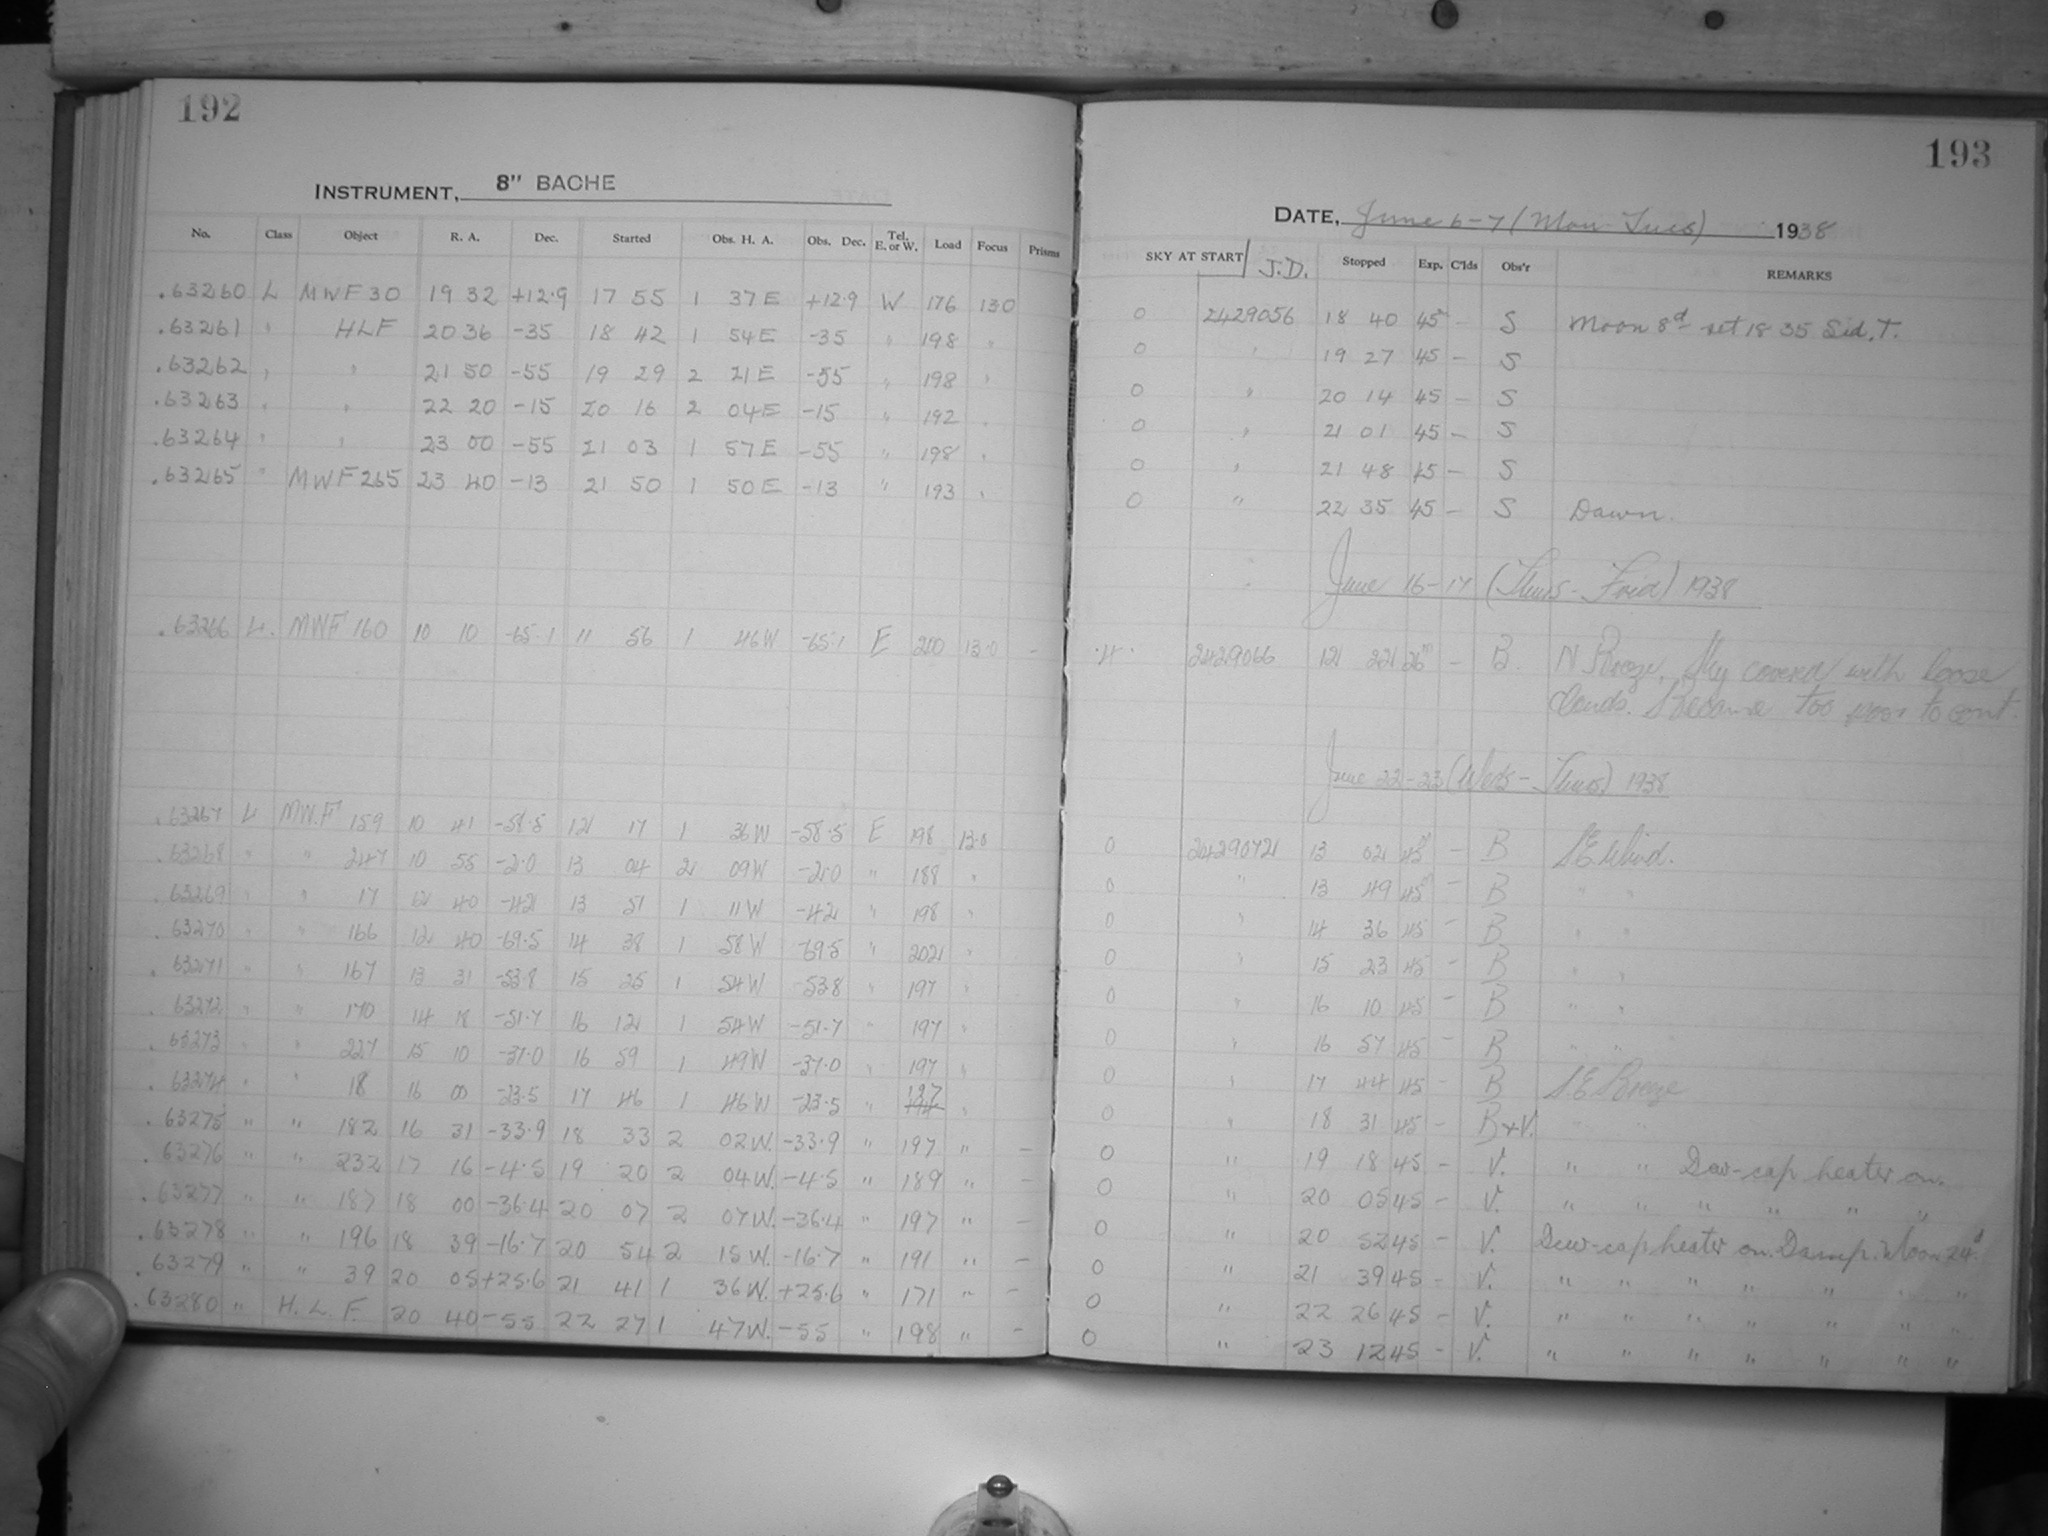 192
INSTRUMENT, 8" BACHE
No. Class Object R. A. Dec. Started Obs. H. A. Obs. Dec. Tel. E. or W. Load Focus Prisms
.63260 L MWF 30 19 32 +12.9 17 55 1 37 E +12.9 W 176 13.0
.63261 " HLF 20 36 -35 18 42 1 54 E -35 " 198 "
.63262 " " 21 50 -55 19 29 2 21 E -55 " 198 "
.63263 " " 22 20 -15 20 16 2 04 E -15 " 192 "
.63264 " " 23 00 -55 21 03 1 57 E -55 " 198 "
.63265 " MWF 265 23 40 -13 21 50 1 50 E -13 " 193 "
.63266 L. MWF 160 10 10 -65.1 11 56 1 46 W -65.1 E 200 13.0 -
.63267 L MW.F 159 10 41 -58.5 12 17 1 36 W -58.5 E 198 13.0
.63268 " " 247 10 55 -2.0 13 04 2 09 W -2.0 " 188 "
.63269 " " 17 12 40 -42 13 51 1 11 W -42 " 198 "
.63270 " " 166 12 40 -69.5 14 38 1 58 W -69.5 " 202 "
.63271 " " 167 13 31 -53.8 15 25 1 54 W -53.8 " 197 "
.63272 " " 170 14 18 -51.7 16 12 1 54 W -51.7 " 197 "
.63273 " " 227 15 10 -37.0 16 59 1 49 W -37.0 " 197 "
.63274 " " 18 16 00 -23.5 17 46 1 46 W -23.5 " "
.63275 " " 182 16 31 -33.9 18 33 2 02 W. -33.9 " 197 " -
.63276 " " 232 17 16 -4.5 19 20 2 04 W. -4.5 " 189 " -
.63277 " " 187 18 00 -36.4 20 07 2 07 W. -36.4 " 197 " -
.63278 " " 196 18 39 -16.7 20 54 2 15 W. -16.7 " 191 " -
.63279 " " 39 20 05 +25.6 21 41 1 36 W. +25.6 " 171 " -
.63280 " H. L. F. 20 40 -55 22 27 1 47 W. -55 " 198 " -
193
DATE, June 6-7 (Mon-Tues) 1938
SKY AT START J.D. Stopped Exp. C'lds Obs'r REMARKS
0 2429056 18 40 45 - S Moon 8d set 18 35 Sid. T.
0 " 19 27 45 - S
0 " 20 14 45 - S
0 " 21 01 45 - S
0 " 21 48 45 - S
0 " 22 35 45 - S Dawn.
June 16-17 (Thurs-Frid) 1938
2429066 12 22 26m - B. N Breeze. Sky covered with loose
clouds. Became too poor to cont.
June 22-23 (Weds-Thurs) 1938
0 2429072 13 02 45m - B S.E. Wind.
0 " 13 49 45m - B " "
0 " 14 36 45 - B " "
0 " 15 23 45 - B " "
0 " 16 10 45 - B " "
0 " 16 57 45 - B " "
0 " 17 44 45 - B S.E. Breeze
0 " 18 31 45 - B+V. " "
0 " 19 18 45 - V. " " Dew-cap heater on.
0 " 20 05 45 - V. " " " " " "
0 " 20 52 45 - V. Dew-cap heater on. Damp. Moon 24d.
0 " 21 39 45 - V. " " " " " " "
0 " 22 26 45 - V. " " " " " " "
0 " 23 12 45 - V. " " " " " " "